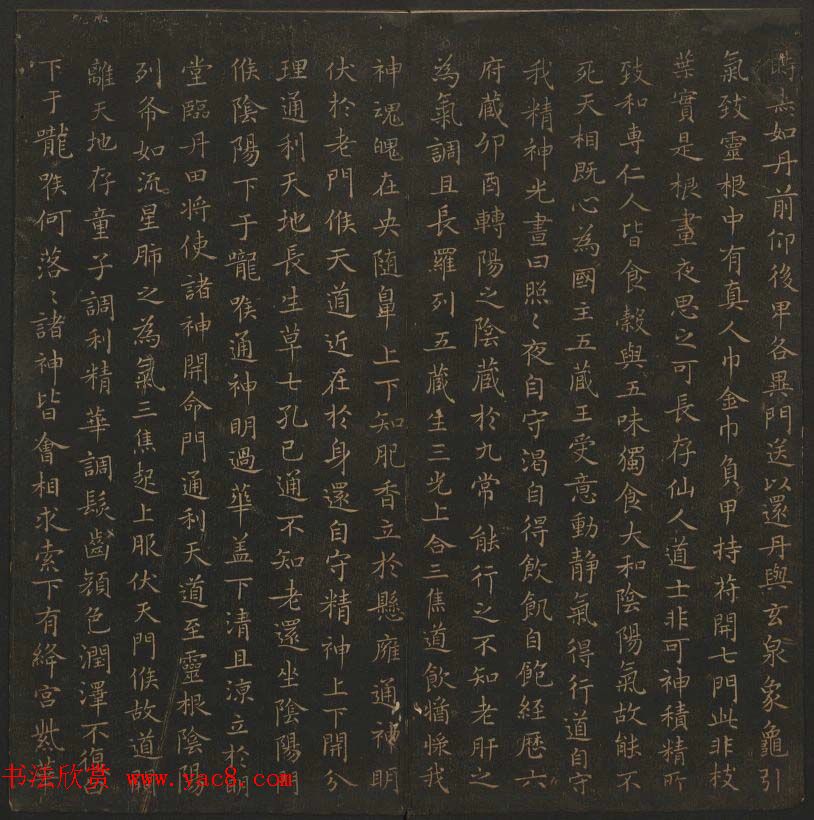 如丹前仰後卑各異門送以還丹與玄泉象龜引
氣致靈根中有真人巾金巾負甲持符開七門此非枝
葉實是根晝夜思之可長存仙人道士非可神積精所
致和專仁人皆食穀與五味獨食大和陰陽氣故能不
死天相既心為國主五藏王受意動靜氣得行道自守
我精神光晝日照〻夜自守渴自得飲飢自飽經歷六
府藏卯酉轉陽之陰藏於九常能行之不知老肝之
為氣調且長羅列五藏生三光上合三焦道飲 我
神魂魄在央随鼻上下知肥香立於懸 通神明
伏於老門候天道近在於身還自守精神上下開分
理通利天地長生草七孔已通不知老還坐陰陽門
候陰陽下于嚨喉通神明過華盖下清且涼立於明
堂臨丹田將使諸神開命門通利天道至靈根陰陽
列布如流星肺之為氣三焦起上服伏天門候故道
離天地存童子調利精華調髮齒顔色潤澤不復白
下于嚨喉何落〻諸神皆會相求索下有絳宮紫華
书法欣赏 www.yac8.com